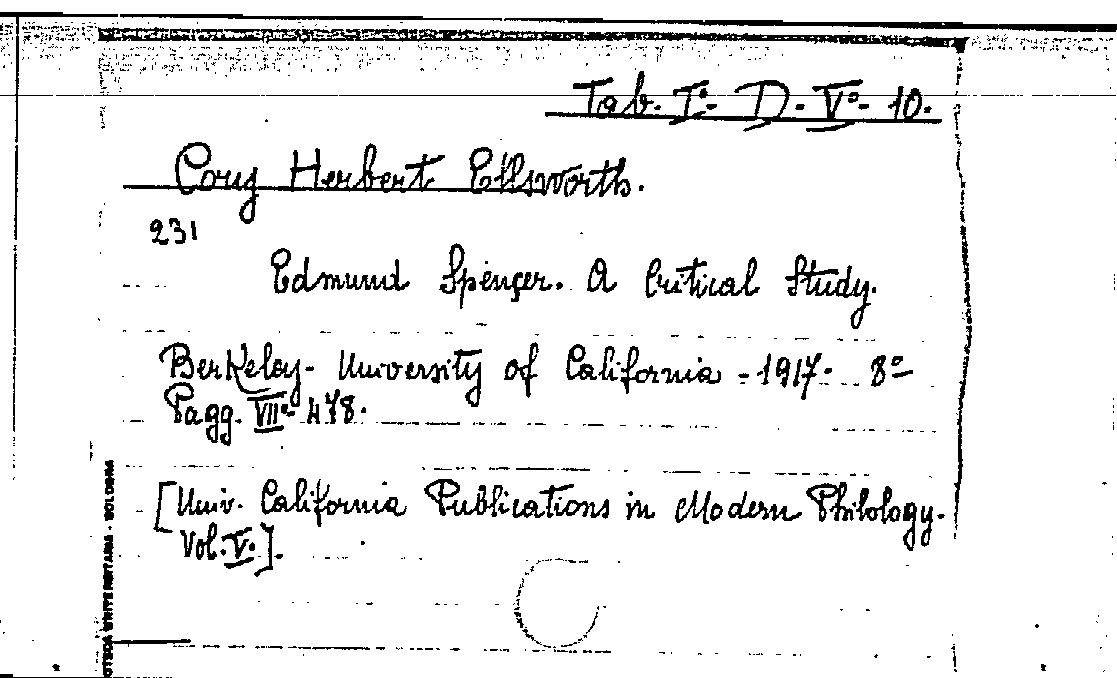 Tab. I.º D. V.º 10.
Cory Herbert Ellsworth.
231
Edmund Spenser. A Critical Study.
Berkeley - University of California - 1917. 8º
Pagg. VIIº- 478.
[Univ. California Publications in Modern Philology.
Vol. V.].
OTECA UNIVERSITARIA - BOLOGNA